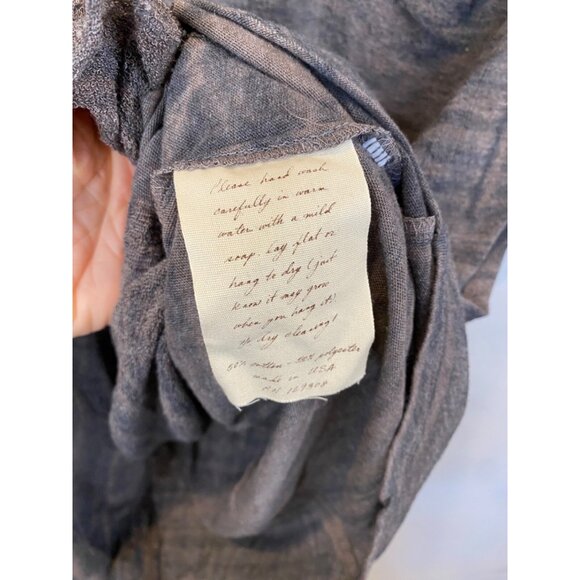 Please hand wash
carefully in warm
water with a mild
soap. Lay flat or
hang to dry (just
know it may grow
when you hang it)
No dry cleaning!
50% cotton - 50% polyester
made in USA
RN 129308